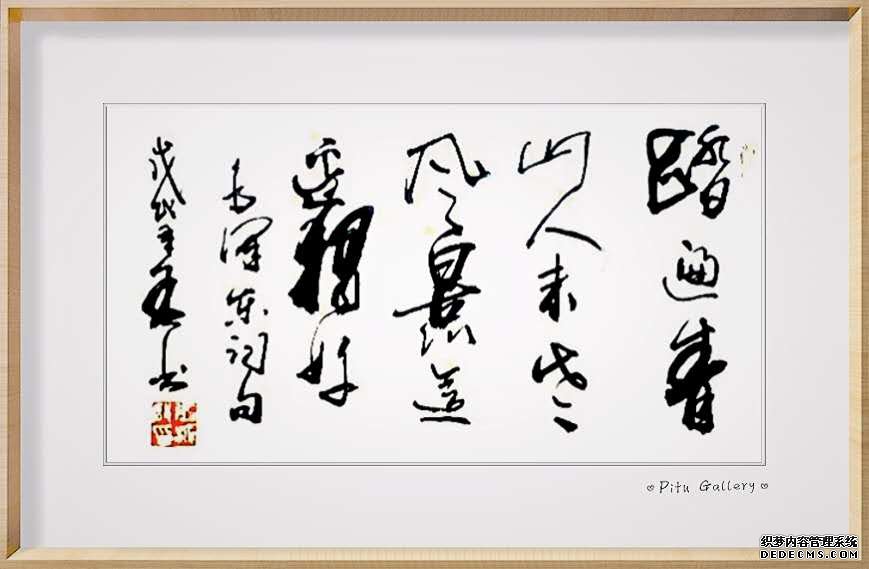 踏遍青
山人未老
风景這
邊獨好
毛澤东词句
戊戌 书
Pitu Gallery
织梦内容管理系统
DEDECMS.COM